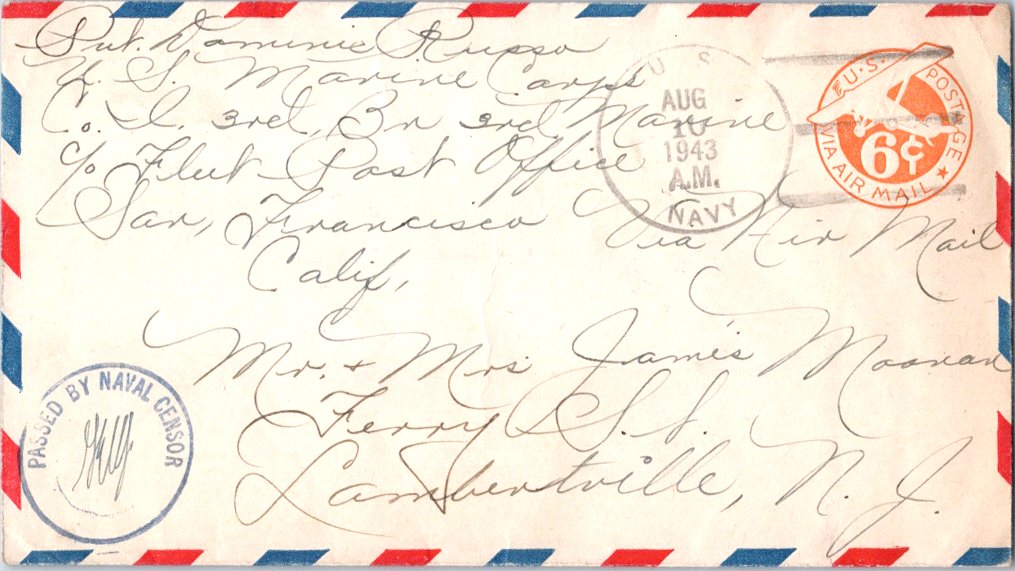 Pvt. Dominic Russo
U. S. Marine Corps
Co. I. 3rd, Bn 3rd Marine
c/o Fleet Post Office
San, Francisco
Calif,
U S
AUG
10
1943
A.M.
NAVY
U.S. POSTAGE
6¢
VIA AIR MAIL
Via Air Mail
Mr. + Mrs James Moonan
Ferry S.S.
Lambertville, N. J.
PASSED BY NAVAL CENSOR